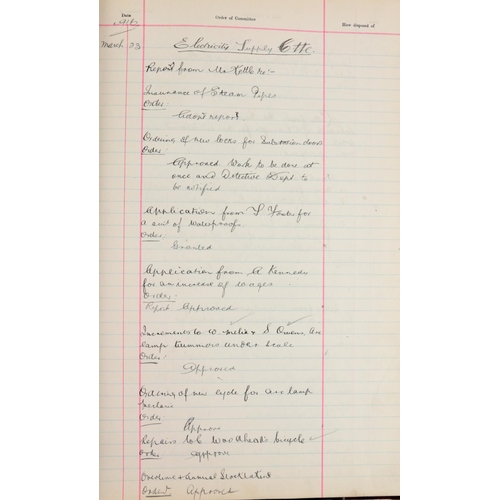 Date
Order of Committee
How disposed of
March 33
Electricity Supply Ctte.
Report from Mr Kettle re:-
Insurance of Steam Pipes
Order:
Adopt report
Ordering of new locks for Substation doors
Order
Approved. Work to be done at
once and Detective Dept to
be notified
Application from for
a suit of waterproofs.
Order:
Granted
Application from A Kennedy
for an increase of wages
Order:
Report Approved
Increments to W. & S. Owens, Arc
lamp trimmers under scale
Order:
Approved
Ordering of new cycle for arc lamp
Order:
Approve
Repairs to C Woodhead's bicycle
Order approve
Overtime & annual
Order Approved